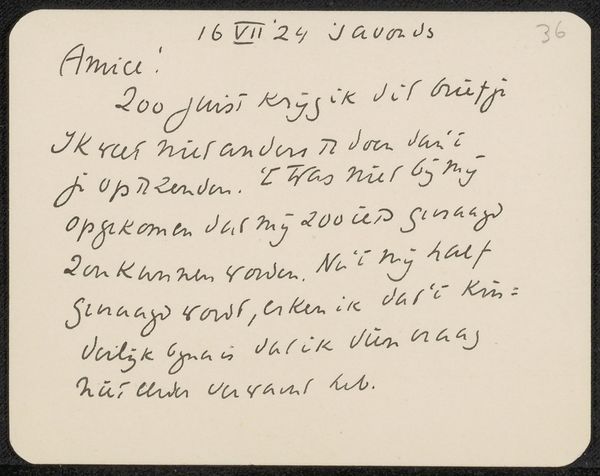 16 VII '24 's avonds
36
Amice!
Zoo juist krijg ik dit briefje
Ik weet niet anders te doen dan 't
je op te zenden. 't Was niet bij mij
opgekomen dat mij zoo iets gevraagd
zou kunnen worden. Nu 't mij half
gevraagd wordt, erken ik dat 't kin=
derlijk bijna is dat ik dien vraag
niet eerder verwacht heb.